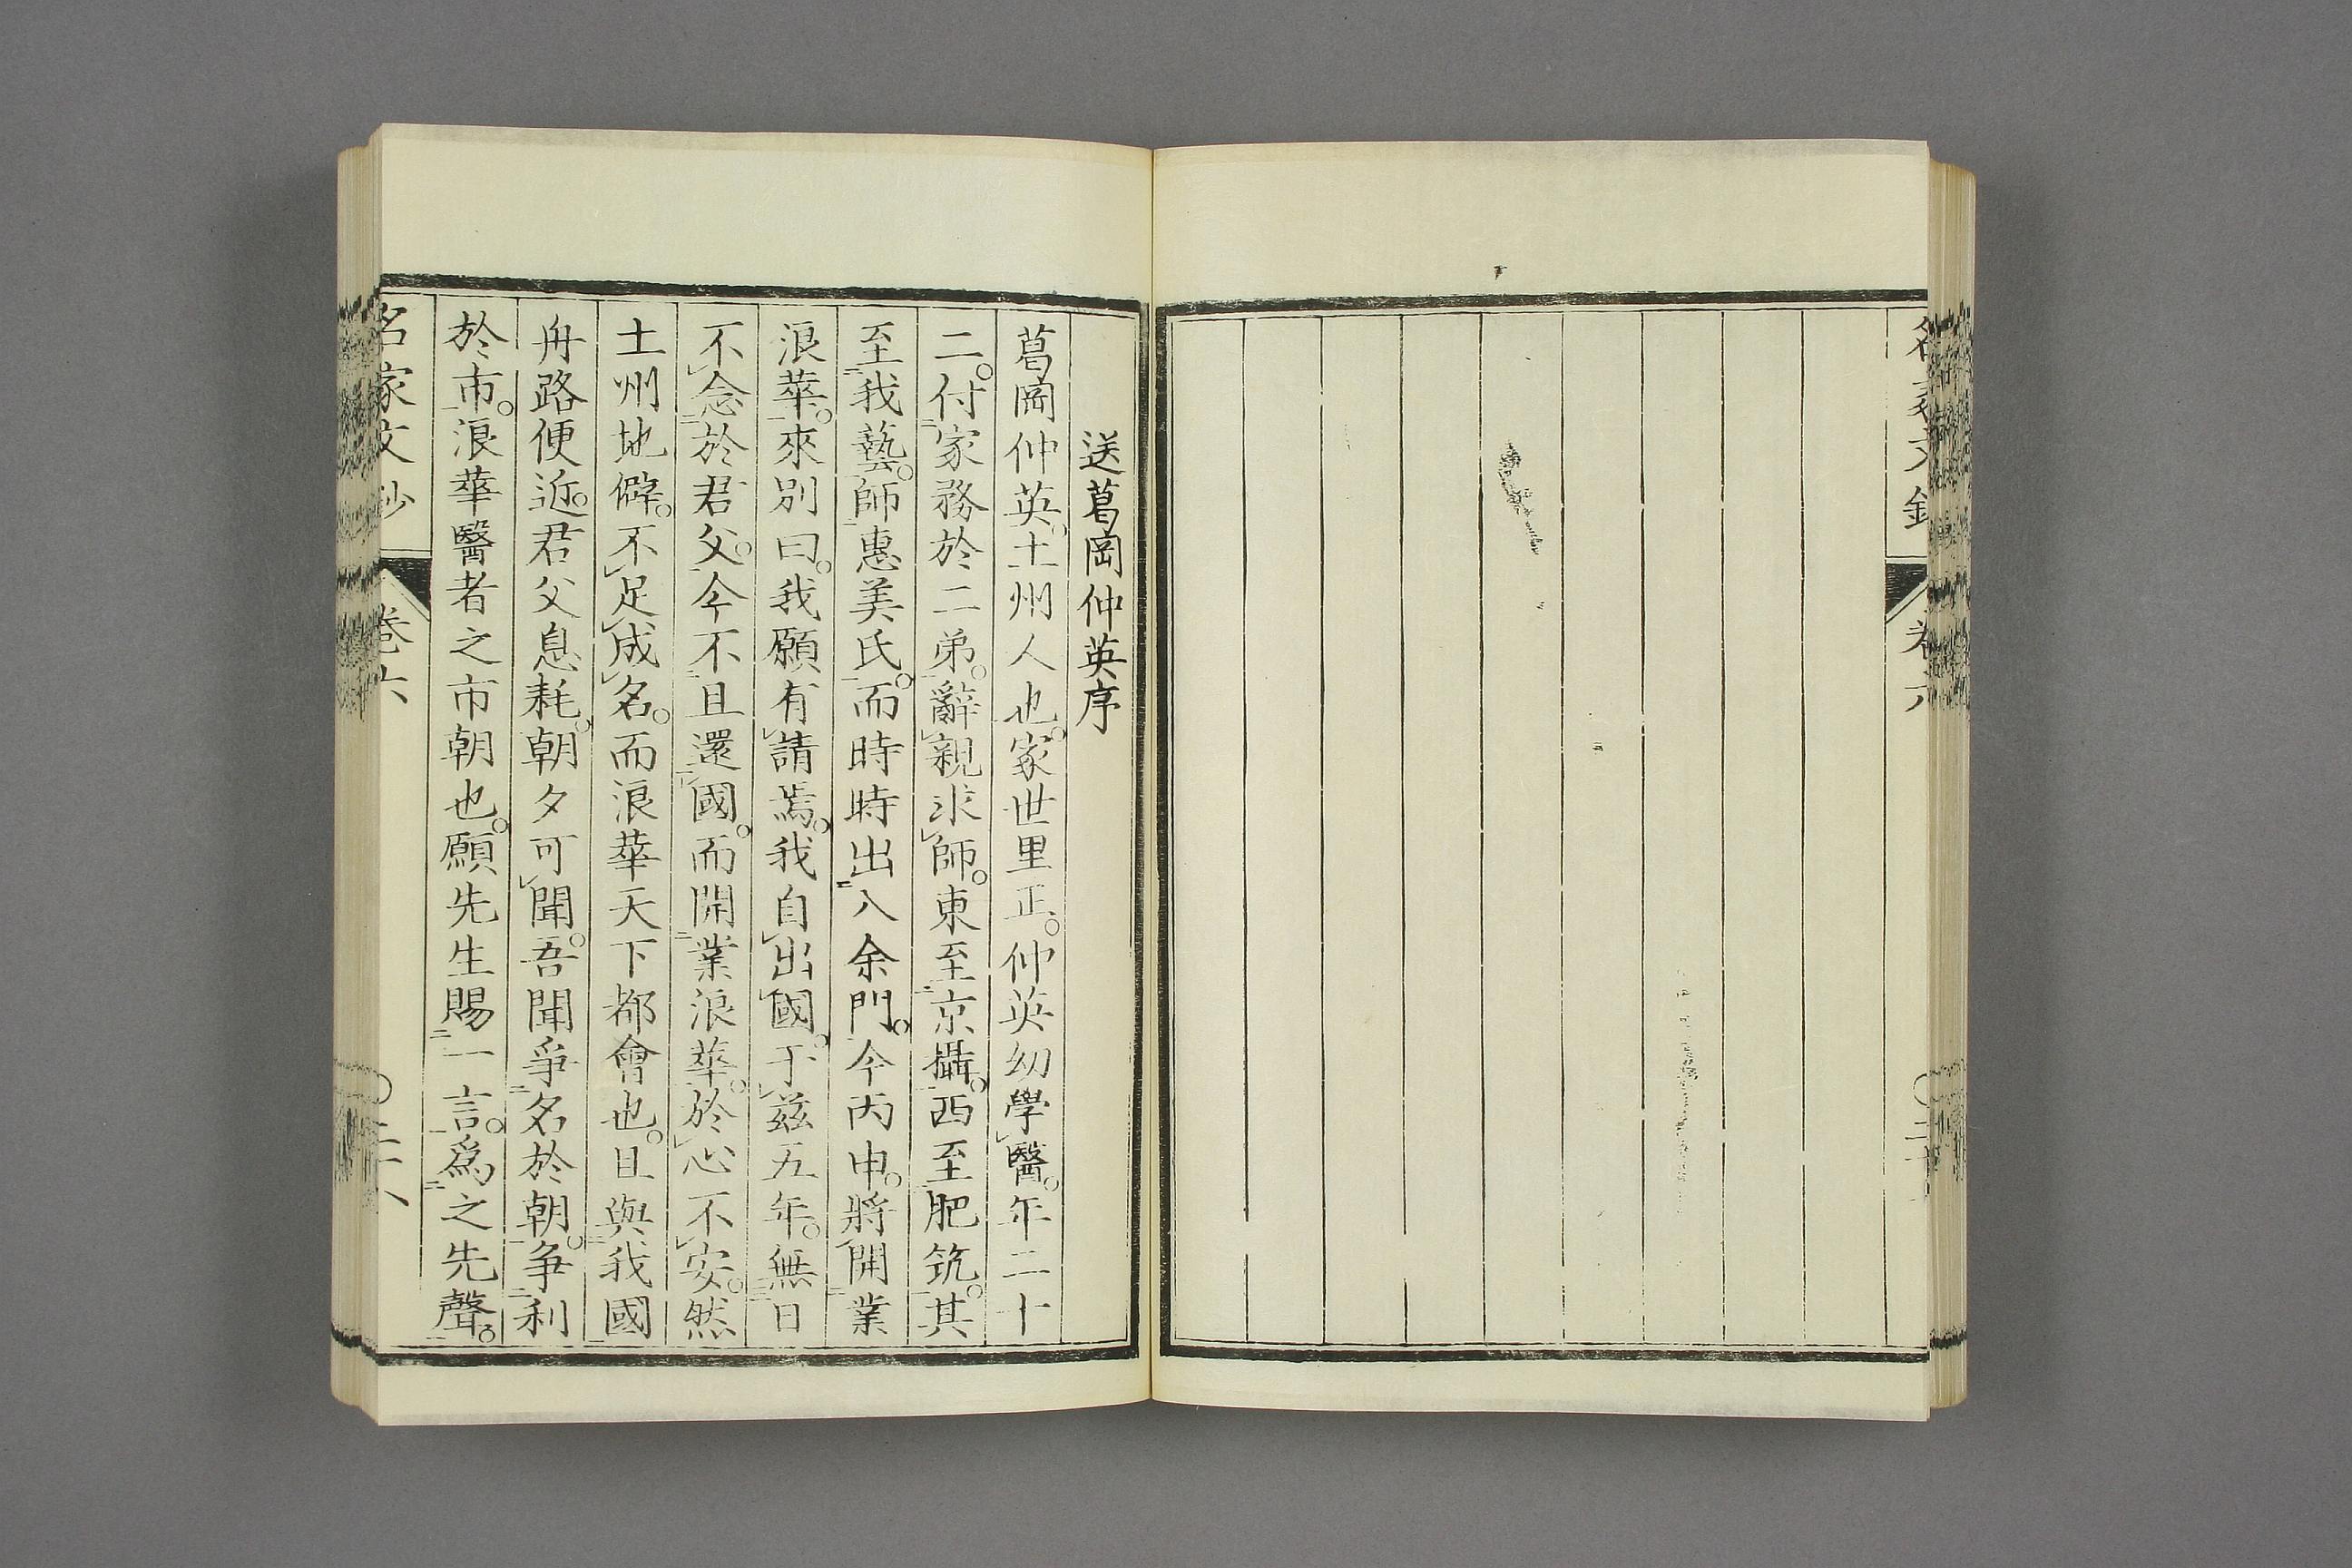 送葛岡仲英序
葛岡仲英。土州人也。家世里正。仲英幼學醫。年二十
二。付家務於二弟。辭親求師。東至京攝。西至肥筑。其
至我藝。師惠美氏。而時時出入余門。今丙申。將開業
浪華。來別曰。我願有請焉。我自出國。于茲五年。無日
不念於君父。今不且還國。而開業浪華。於心不安。然
土州地僻。不足成名。而浪華天下都會也。且與我國
舟路便近。君父息耗。朝夕可聞。吾聞爭名於朝。争利
於市。浪華醫者之市朝也。願先生賜一言。爲之先聲。
名家文抄
卷六